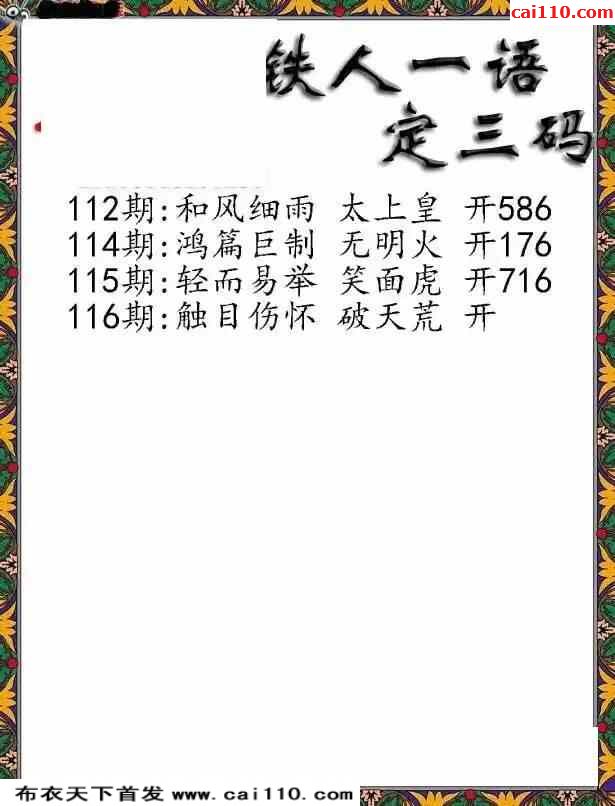 cai110.com
铁人一语
定三码
112期:和风细雨 太上皇 开586
114期:鸿篇巨制 无明火 开176
115期:轻而易举 笑面虎 开716
116期:触目伤怀 破天荒 开
布衣天下首发 www.cai110.com